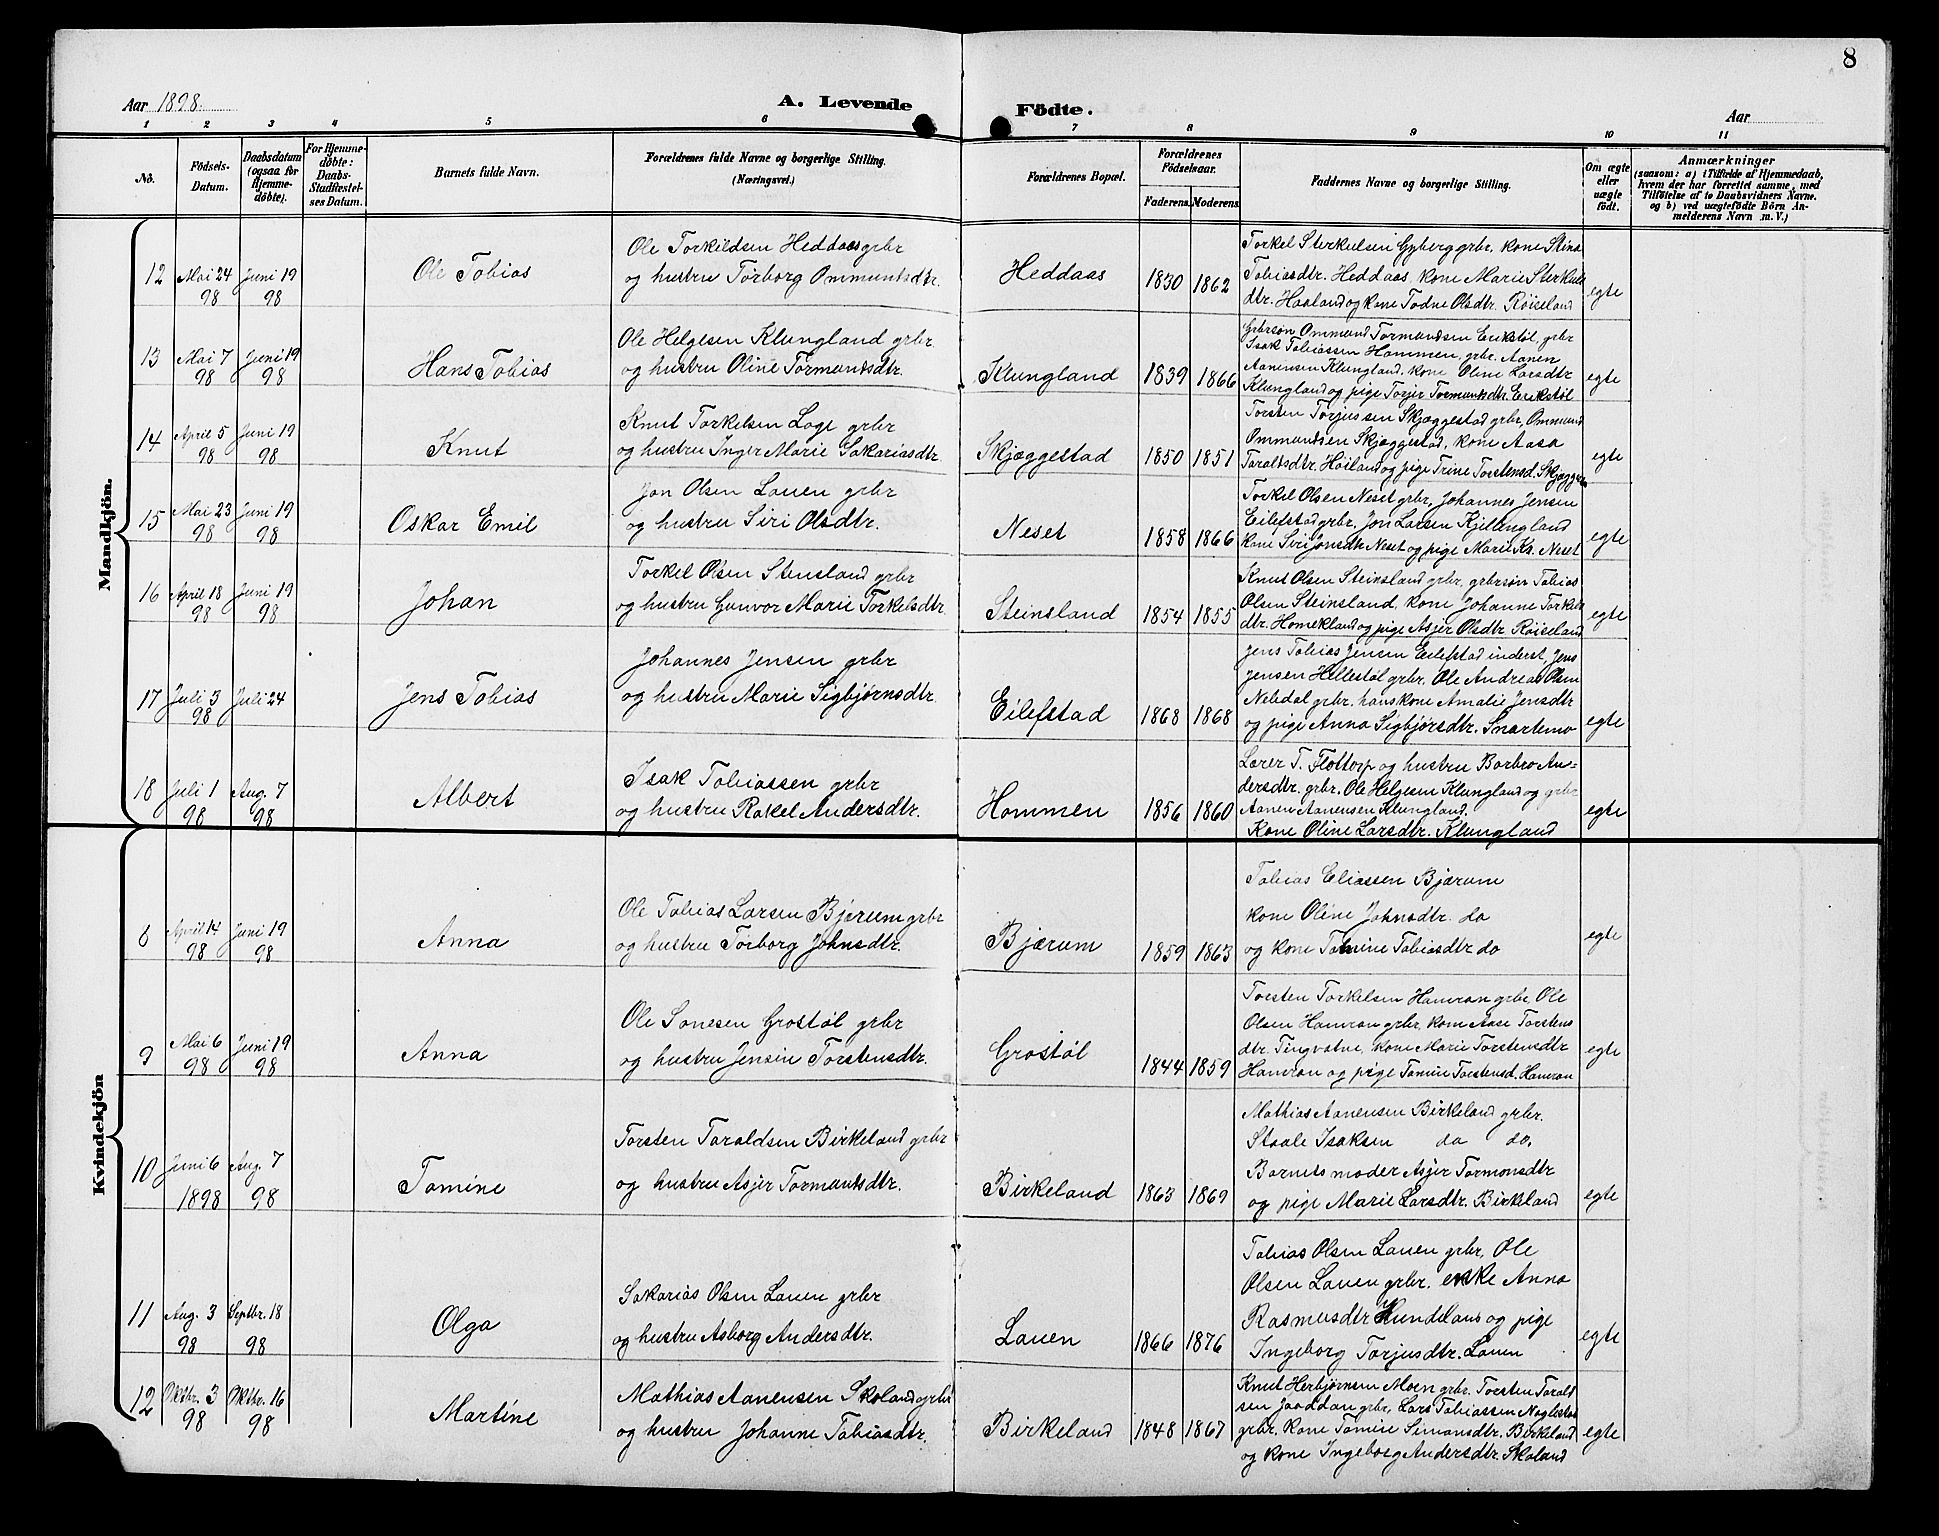 8
Aar 1898. A. Levende Födte. Aar
1 2 3 4 5 6 7 8 9 10 11
No. Födsels-Datum. Daabsdatum (ogsaa for Hjemme-döbte). For Hjemme-döbte: Daabs-Stadfæstel-ses Datum. Barnets fulde Navn. Forældrenes fulde Navne og borgerlige Stilling. (Næringsvei.) Forældrenes Bopæl. Forældrenes Födselsaar. Faderens. Moderens. Faddernes Navne og borgerlige Stilling. Om ægte eller uægte födt. Anmærkninger (saasom: a) i Tilfælde af Hjemmedaab, hvem der har forrettet samme, med Tilföielse af to Daabsvidners Navne. og b) ved uægtefödte Börn An-melderens Navn m. V.)
Mandkjön.
12 Mai 24 98 Juni 19 98 Ole Tobias
Ole Torkildsen Heddaas grbr
og hustru Torborg Ommundsdtr.
Heddaas 1830 1862
Torkel Sterkelsen Gyberg grbr. kone Stina
Tobiasdtr. Heddaas, kone Marie Sterkels
dtr. Haaland og kone Todne Olsdtr. Röiseland
egte
13 Mai 7 98 Juni 19 98 Hans Tobias
Ole Helgesen Klungland grbr
og hustru Oline Tormundsdtr.
Klungland 1839 1866
Grbrsøn Ommund Tormundsen Erikstøl, grbr
Isak Tobiassen Hommen, grbr. Aanen
Aanensen Klungland, kone Oline Larsdtr
Klungland og pige Torjer Tormundsdtr. Erikstøl
egte
14 April 5 98 Juni 19 98 Knut
Knut Torkelsen Loge grbr
og hustru Inger Marie Sakariasdtr
Skjæggestad 1850 1851
Torsten Torjussen Skjæggestad grbr, Ommund
Ommundsen Skjæggestad, kone Aasa
Taraldsdtr. Høiland og pige Trine Torstensd. Skjægges
egte
15 Mai 23 98 Juni 19 98 Oskar Emil
Jon Olsen Lauen grbr
og hustru Siri Olsdtr.
Neset 1858 1866
Torkel Olsen Neset grbr, Johannes Jensen
Eilefstad grbr. Jon Larsen Kjellingland
kone Siri Jonsdtr Neset og pige Marie Kr. Neset
egte
16 April 18 98 Juni 19 98 Johan
Torkel Olsen Stensland grbr
og hustru Gunvor Marie Torkelsdtr.
Steinsland 1854 1855
Knut Olsen Steinsland grbr, grbrsøn Tobias
Olsen Steinsland, kone Johanne Torkels
dtr. Homekland og pige Asjer Olsdtr. Röiseland
egte
17 Juli 3 98 Juli 24 Jens Tobias
Johannes Jensen grbr
og hustru Marie Sigbjørnsdtr.
Eilefstad 1868 1868
Jens Tobias Jensen Eilefstad inderst, Jens
Jensen Hellestøl grbr, Ole Andreas Olsen
Nebdal grbr. hans kone Amalie Jensdtr
og pige Anna Sigbjørsdtr. Snartemo
egte
18 Juli 1 98 Aug. 7 98 Albert
Isak Tobiassen grbr
og hustru Rakel Andersdtr.
Hommen 1856 1860
Lærer T. Flottorp og hustru Barbro An-
dersdtr. grbr. Ole Helgesen Klungland og grbr
Aanen Aanensen Klungland.
Kone Oline Larsdtr. Klungland
egte
Kvindekjön
8 April 14 98 Juni 19 98 Anna
Ole Tobias Larsen Bjærum grbr
og hustru Torborg Johnsdtr.
Bjærum 1859 1863
Tobias Eliassen Bjærum
kone Oline Johnsdtr. do
og kone Tomine Tobiasdtr do
egte
9 Mai 6 98 Juni 19 98 Anna
Ole Sonesen Grostøl grbr
og hustru Jensine Torstensdtr.
Grostøl 1844 1859
Torsten Torkelsen Hamran grbr, Ole
Olsen Hamran grbr, kone Aase Torstens
dtr. Tingvatne, kone Marie Torstensdtr
Hamran og pige Tomine Torstensd. Hamran
egte
10 Juni 6 1898 Aug. 7 98 Tomine
Torsten Taraldsen Birkeland grbr
og hustru Asjer Tormundsdtr.
Birkeland 1863 1869
Mathias Aanensen Birkeland grbr.
Staale Isaksen do do.
Barnets moder Asjer Tormonsdtr
og pige Marie Larsdtr. Birkeland
egte
11 Aug. 3 98 Septbr. 18 98 Olga
Sakarias Olsen Lauen grbr
og hustru Asborg Andersdtr.
Lauen 1866 1876
Tobias Olsen Lauen grbr, Ole
Olsen Lauen grbr. enke Anna
Rasmusdtr Hundeland og pige
Ingeborg Torjusdtr. Lauen
egte
12 Oktbr. 3 98 Oktbr. 16 98 Martine
Mathias Aanensen Skoland grbr
og hustru Johanne Tobiasdtr.
Birkeland 1848 1867
Knut Herbjørnsen Moen grbr. Torsten Tarald
sen Jaaddan grbr, Lars Tobiassen Naglestad
grbr. kone Tomine Simonsdtr. Birkeland
og kone Ingeborg Andersdtr. Skoland
egte